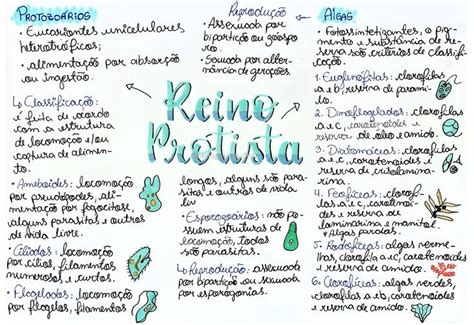 PROTOZOÁRIOS
• Eucariontes unicelulares
heterotróficos;
• alimentação por absorção
ou ingestão.
↳ Classificação:
é feita de acordo
com a estrutura
de locomoção e/ou
captura de alimen-
to.
• Ameboides: locomoção
por pseudópodes, ali-
mentação por fagocitose,
alguns parasitas e outros
de vida livre.
• Ciliados: locomoção
por cílios, filamentos
numerosos e curtos.
• Flagelados: locomoção
por flagelos, filamentos
Reprodução
• Assexuada por
bipartição ou
• Sexuada por alter-
nância de gerações.
Reino
Protista
longos, alguns são para-
sitas e outros de vida
livre
• Esporozoários: não po-
ssuem estruturas de
locomoção, todos
são parasitas.
↳ Reprodução: assexuada
por bipartição ou
por esporogonia.
ALGAS
• Fotossintetizantes, o pig-
mento e substância de re-
serva são critérios de classifi-
cação.
1. Euglenófitas: clorofilas
a e b, reserva de parami-
lo.
2. Dinoflagelados: clorofilas
a e c, carotenoides e
reserva de óleo e amido.
3. Diatomáceas: clorofilas
a e c, carotenoides e
reserva de crisolamina-
rina.
4. Feofíceas: clorofi-
las a e c, carotenoi-
des e reserva de
laminarina e manitol.
Algas pardas.
5. Rodofíceas: algas verme-
lhas, clorofila a e c, carotenoides
e reserva de amido.
6. Clorofíceas: algas verdes,
clorofilas a e b, carotenoides
e reserva de amido.